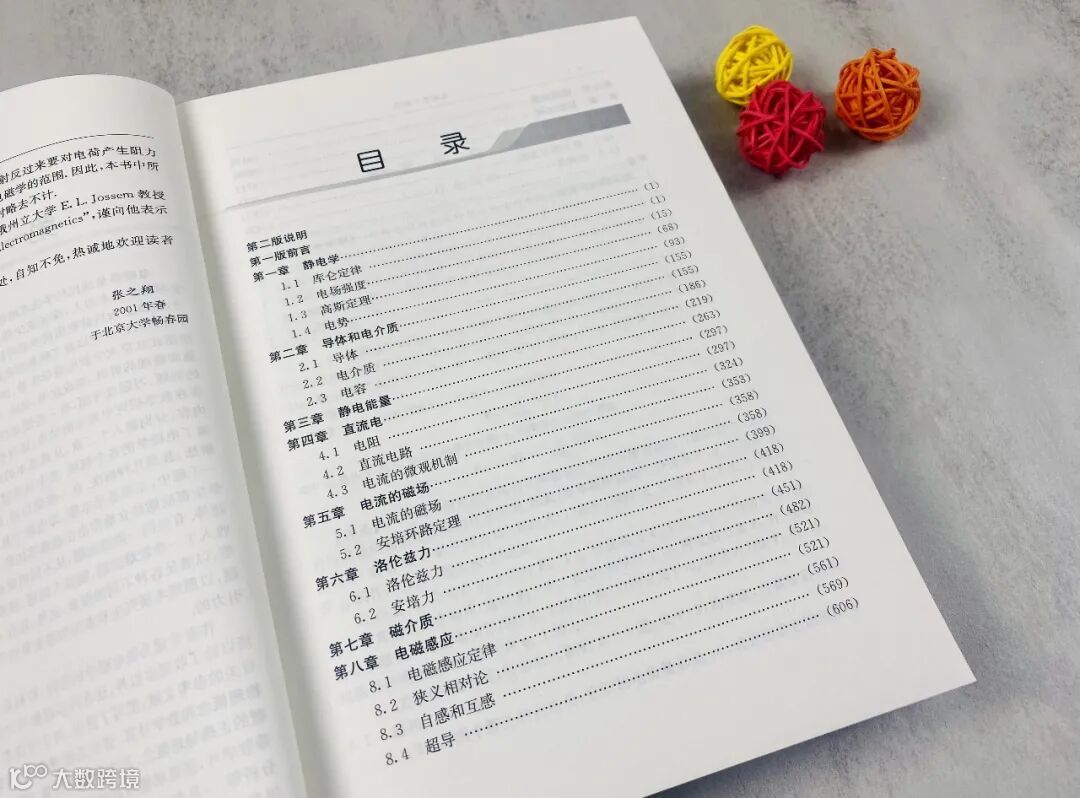 射反过来要对电荷产生阻力
电磁学的范围. 因此, 本书中所
略去不计.
俄州立大学 E. L. Jossem 教授
Electromagnetics”, 谨向他表示
处, 自知不免, 热诚地欢迎读者
张之翔
2001 年春
于北京大学畅春园
目 录
第二版说明
第一版前言
第一章 静电学 (1)
1.1 库仑定律 (1)
1.2 电场强度 (15)
1.3 高斯定理 (68)
1.4 电势 (93)
第二章 导体和电介质 (155)
2.1 导体 (155)
2.2 电介质 (186)
2.3 电容 (219)
第三章 静电能量 (263)
第四章 直流电 (297)
4.1 电阻 (297)
4.2 直流电路 (324)
4.3 电流的微观机制 (353)
第五章 电流的磁场 (358)
5.1 电流的磁场 (358)
5.2 安培环路定理 (399)
第六章 洛伦兹力 (418)
6.1 洛伦兹力 (418)
6.2 安培力 (451)
第七章 磁介质 (482)
第八章 电磁感应 (521)
8.1 电磁感应定律 (521)
8.2 狭义相对论 (561)
8.3 自感和互感 (569)
8.4 超导 (606)
大数跨境